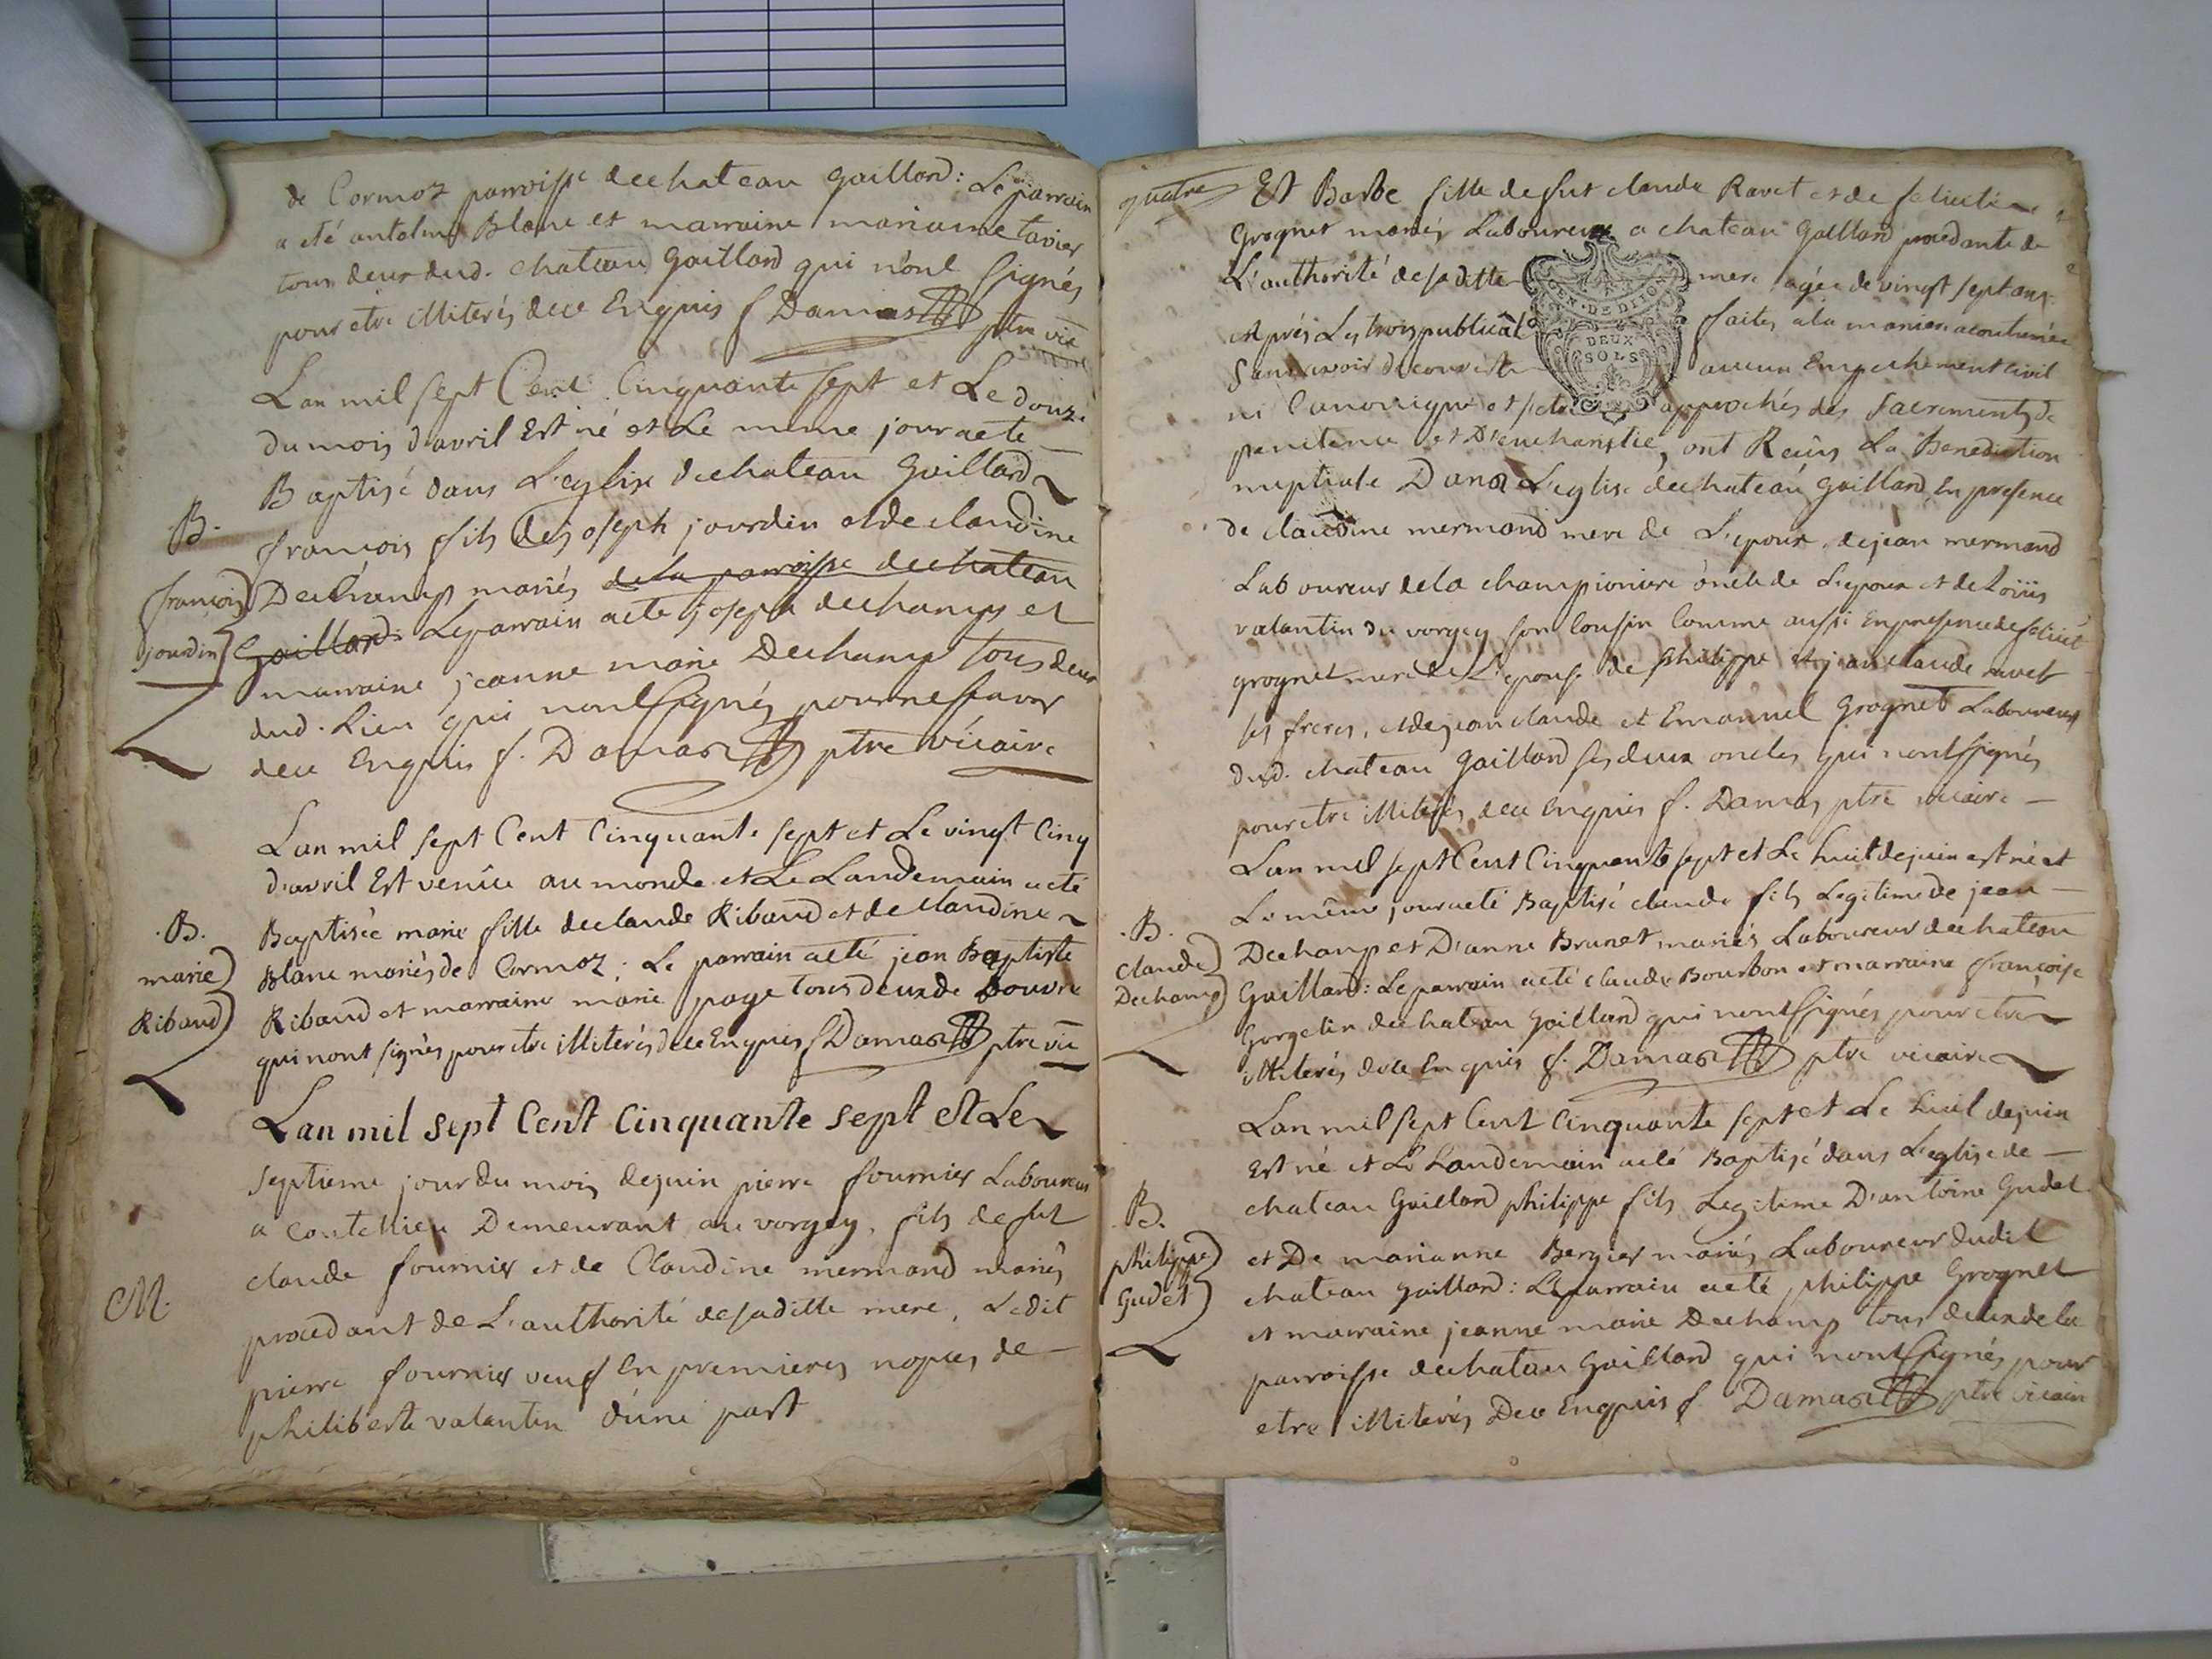 de Cormoz parroisse dechateau gaillard: Le parrain
a eté antelme Blanc et marraine marianne tavier
tous deux dud. chateau gaillard qui n'ont signés
pour etre illiterés de ce Enquis f Damas ptre vic
Lan mil sept Cent Cinquante sept et Le douze
du mois d'avril Est né et Le meme jour a ete
Baptisé dans L'eglise dechateau Gaillard
.B.
francois fils de joseph jourdin et de claudine
françois
Dechamp mariés de la parroisse dechateau
jourdin
Gaillard: Le parrain a ete joseph dechamps et
marraine jeanne marie Dechamp tous deux
dud. Lieu qui nont signés pour ne scavoir
de ce Enquis f. Damas ptre vicaire
Lan mil sept Cent Cinquante sept et Le vingt Cinq
d'avril Est venüe au monde et Le Landemain a eté
.B.
Baptiseé marie fille declaude Ribaud et de claudine
marie
Blanc mariés de Cormoz; Le parrain a eté jean Baptiste
Ribaud
Ribaud et marraine marie page tous deux de Douvre
qui nont signés pour etre illiterés de ce Enquis f Damas ptre vic
Lan mil sept Cent Cinquante sept et Le
septieme jour du mois de juin pierre fournier Laboureur
a Coutelieu Demeurant au vorgey, fils de fut
claude fournier et de Claudine mermand mariés
M.
procedant de L'authorité de saditte mere, Ledit
pierre fournier veuf En premieres nopces de
philiberte valantin d'une part
quatre
Et Barbe fille de fut claude Ravet et de felicité
Grognet mariés Laboureur a chateau Gaillard procedante de
L'authorité de saditte mere agée de vingt sept ans
Aprés Les trois publicat faites a la maniere acoutumée
sans avoir decouvert aucun Empechement civil
ni Canonique et s'etant approchés des sacrements de
penitence et D'eucharistie, ont Reçus La Benediction
nuptiale Dans L'eglise dechateau gaillard En presence
de claudine mermand mere de L'epoux, de jean mermand
Laboureur de la championiere oncle de L'epoux et de Loüis
valantin du vorgey son Cousin Comme aussi En presence de felicité
grognet mere de L'epouse de philippe et jean claude ravet
ses freres, et de jean claude et Emanuel Grognet Laboureurs
dud. chateau Gaillard ses deux oncles qui nont signés
pour etre illiterés de ce Enquis f. Damas ptre vicaire
Lan mil sept Cent Cinquante sept et Le huit de juin est né et
Le même jour a eté Baptisé claude fils Legitime de jean
.B.
Dechamp et D'anne Brunet mariés Laboureur dechateau
claude
Dechamp
Gaillard: Le parrain a eté claude Bourbon et marraine françoise
Gorgelin dechateau Gaillard qui nont signés pour etre
illiterés de ce Enquis f. Damas ptre vicaire
Lan mil sept Cent Cinquante sept et Le huit de juin
Est né et Le Landemain a eté Baptisé dans L'eglise de
chateau Gaillard philippe fils Legitime D'antoine Gudet
B.
et De marianne Bergier mariés Laboureur dudit
philippe
chateau gaillard: Le parrain a eté philippe Grognet
Gudet
et marraine jeanne marie Dechamp tous deux de la
parroisse dechateau Gaillard qui nont signés pour
etre illiterés De ce Enquis f. Damas ptre vicaire
GEN. DE DIJON
DEUX
SOLS